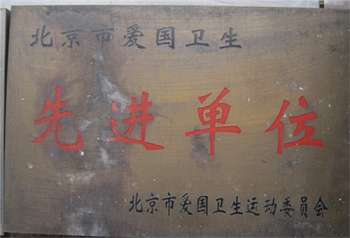 北京市爱国卫生
先进单位
北京市爱国卫生运动委员会